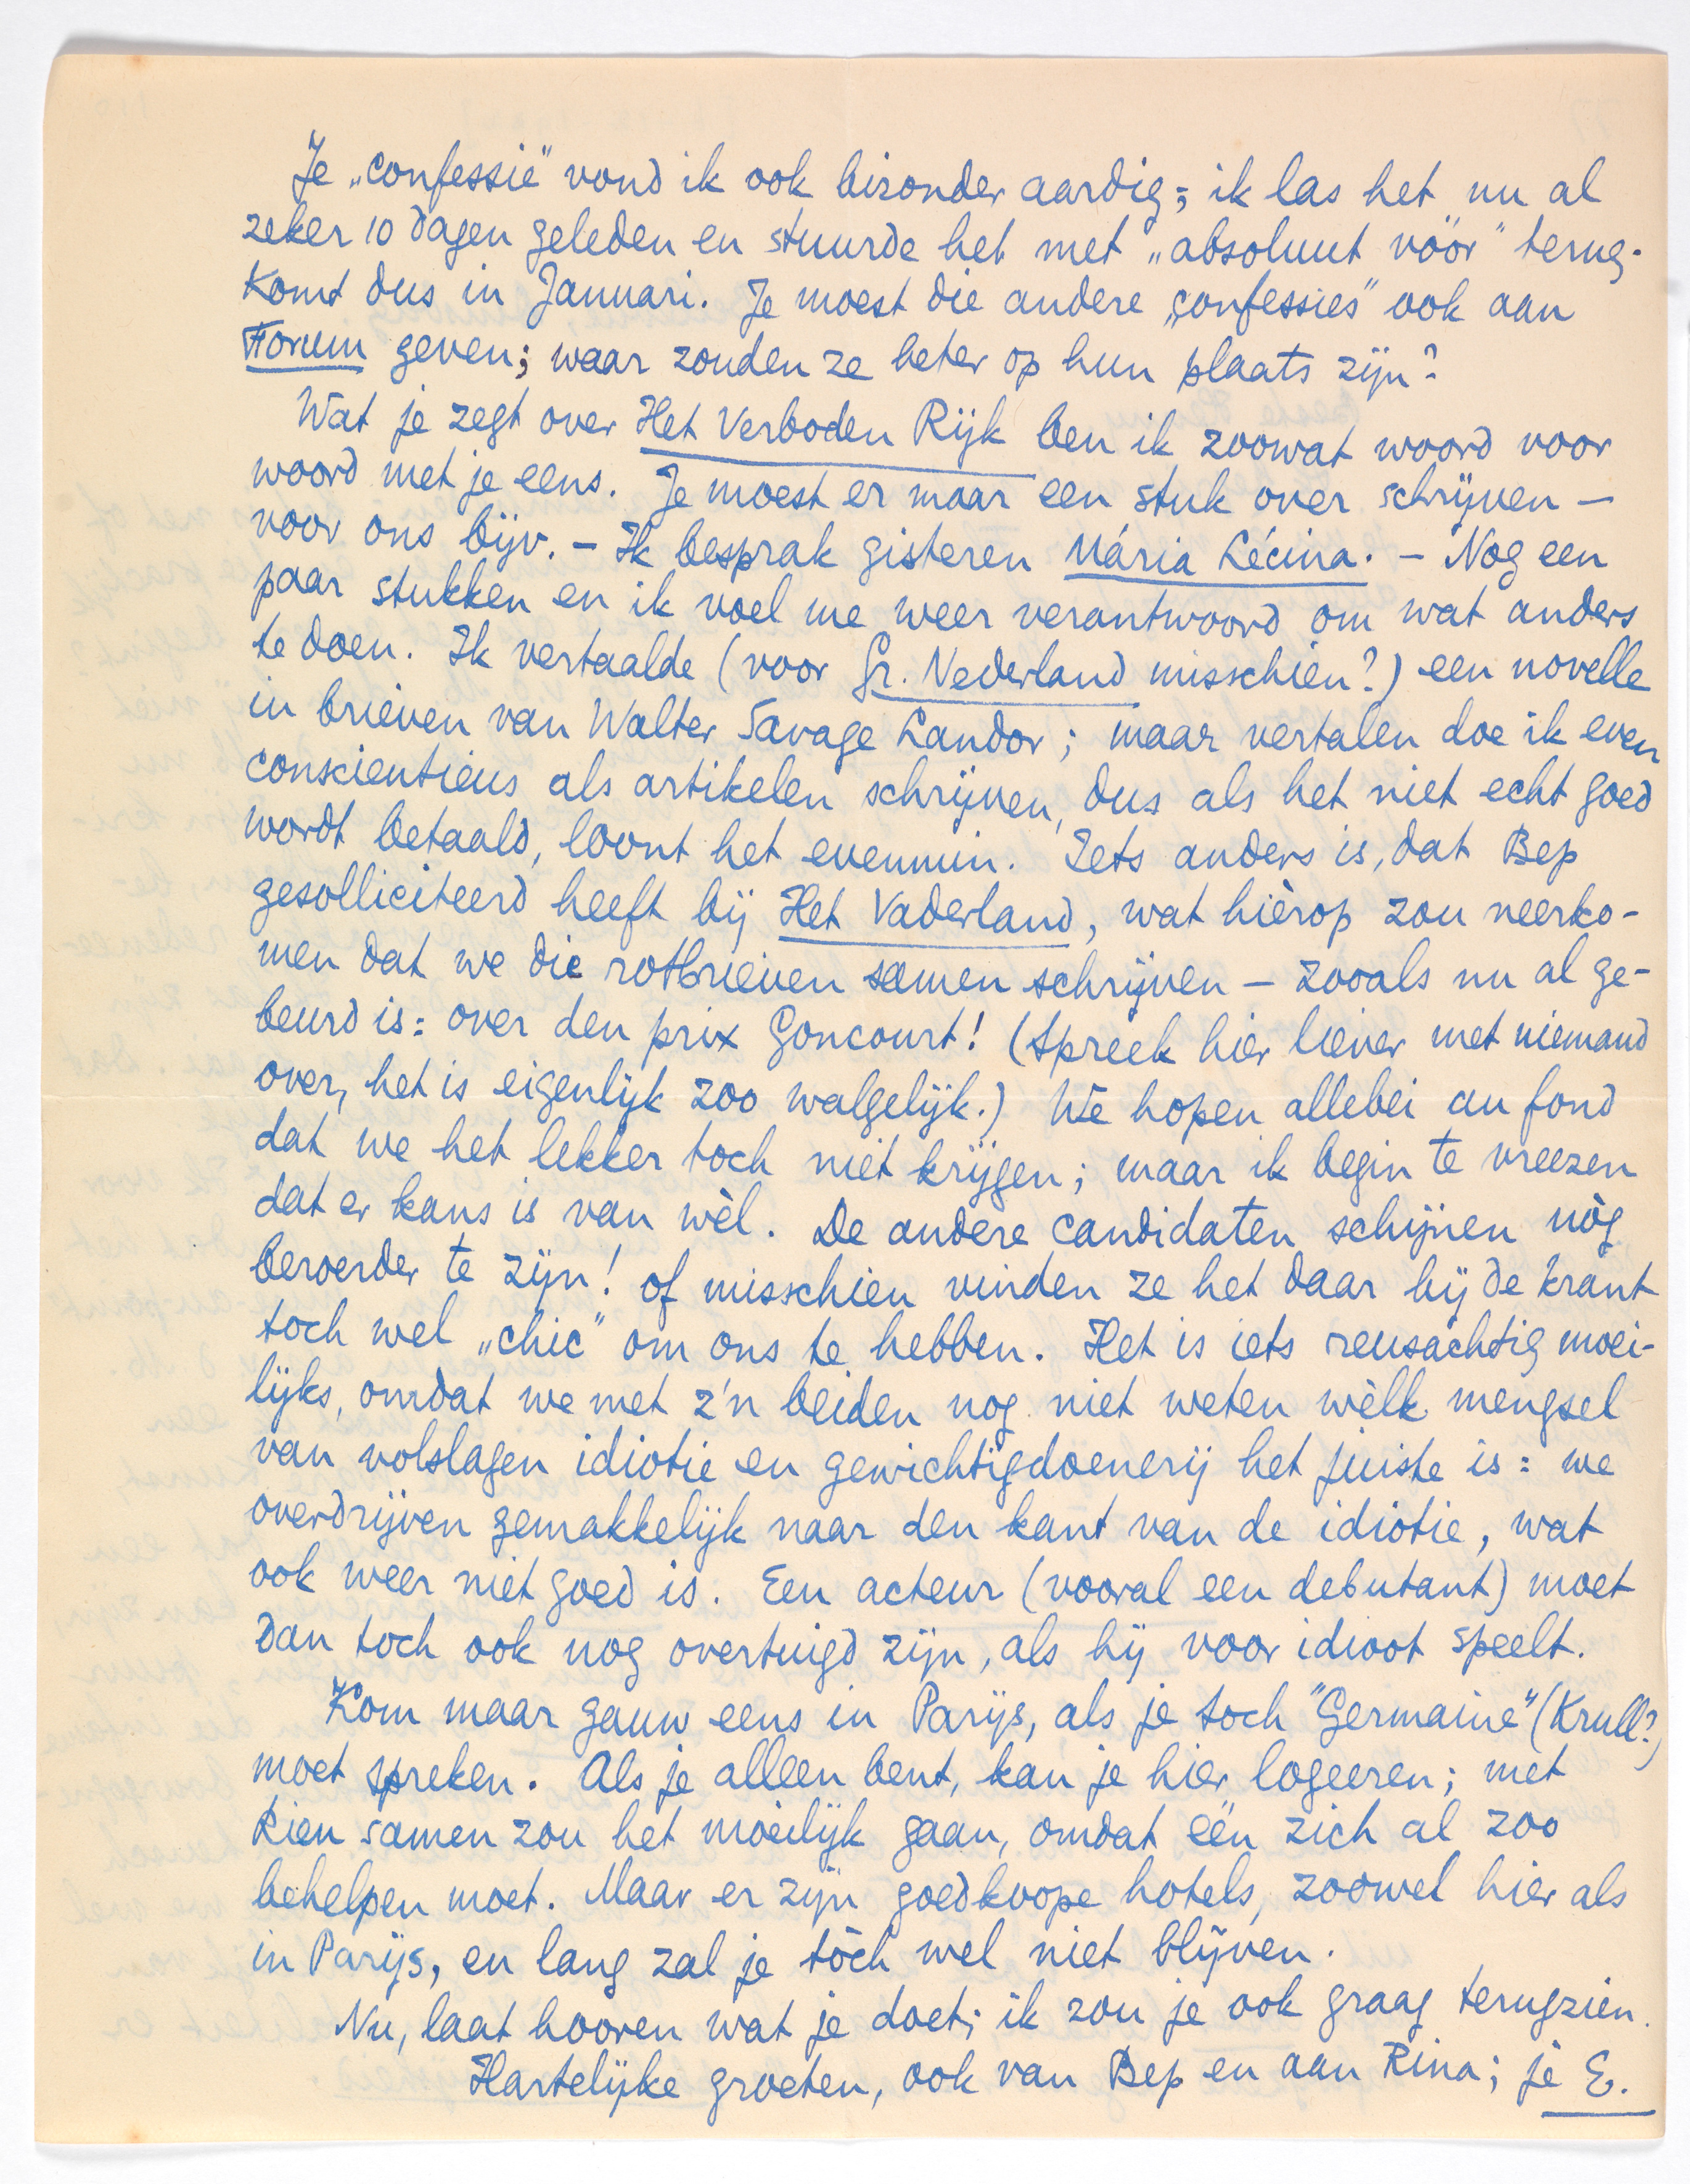 Je „confessie" vond ik ook bizonder aardig; ik las het nu al
zeker 10 dagen geleden en stuurde het met „absoluut vóór" terug.
Komt dus in Januari. Je moest die andere „confessies" ook aan
Forum geven; waar zouden ze beter op hun plaats zijn?
Wat je zegt over Het Verboden Rijk ben ik zoowat woord voor
woord met je eens. Je moest er maar een stuk over schrijven —
voor ons bijv. — Ik besprak gisteren Mária Lécina. — Nog een
paar stukken en ik voel me weer verantwoord om wat anders
te doen. Ik vertaalde (voor Gr. Nederland misschien?) een novelle
in brieven van Walter Savage Landor; maar vertalen doe ik even
conscientieus als artikelen schrijven, dus als het niet echt goed
wordt betaald, loont het evenmin. Iets anders is, dat Bep
gesolliciteerd heeft bij Het Vaderland, wat hièrop zou neerko-
men dat we die rotbrieven samen schrijven — zooals nu al ge-
beurd is: over den prix Goncourt! (Spreek hier liever met niemand
over, het is eigenlijk zoo walgelijk.) We hopen allebei au fond
dat we het lekker toch niet krijgen; maar ik begin te vreezen
dat er kans is van wèl. De andere candidaten schijnen nòg
beroerder te zijn! of misschien vinden ze het daar bij de krant
toch wel „chic" om ons te hebben. Het is iets reusachtig moei-
lijks, omdat we met z'n beiden nog niet weten wèlk mengsel
van volslagen idiotie en gewichtigdoenerij het juiste is: we
overdrijven gemakkelijk naar den kant van de idiotie, wat
ook weer niet goed is. Een acteur (vooral een debutant) moet
dan toch ook nog overtuigd zijn, als hij voor idioot speelt.
Kom maar gauw eens in Parijs, als je toch "Germaine" (Krull?)
moet spreken. Als je alleen bent, kan je hier logeeren; met
Rien samen zou het moeilijk gaan, omdat één zich al zoo
behelpen moet. Maar er zijn goedkoope hotels, zoowel hier als
in Parijs, en lang zal je tòch wel niet blijven.
Nu, laat hooren wat je doet; ik zou je ook graag terugzien.
Hartelijke groeten, ook van Bep en aan Rina; je E.